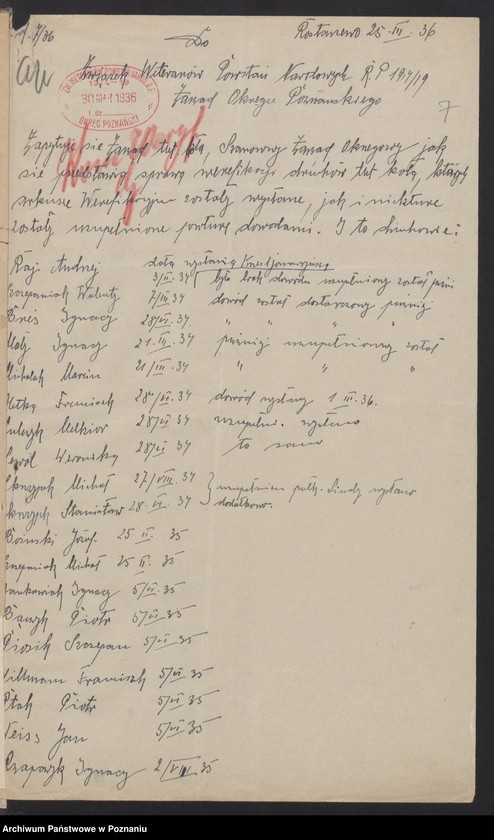 7/36
Rostarzewo 25 III. 36
Do
Związek Weteranów Powstań Narodowych R.P 1914/19
Zarząd Okręgu Poznańskiego
30 MAR 1936
OKRĘG POZNAŃSKI
7
Zapytuje się Zarząd tut. koła, Szanowny Zarząd Okręgowy jak
się przedstawia sprawa weryfikacji druhów tut koła, których
arkusze Weryfikacyjne zostały wysłane, jak i niektóre
zostały uzupełnione powtórnie dowodami. I to druhowie:
data wysłania Kwestjonarjusza
Andrzej 3/VI. 34 było brak dowodu uzupełniony został
Szczepaniak Walenty 7/VI 34 dowód został dostarczony później
Ignacy 28/VI 34. " " "
Ignacy 21. III. 34 później uzupełniony został
Michalak Marcin 21/III. 34 " " "
Franciszek 28/VI. 34 dowód wysłany 1 III. 36.
Melchior 28/VI 34 uzupełn. wysłano
Weronika 28/VI 34 to samo
Skrzypek Michał 27/VIII 34 uzupełnienie wysłano
Skrzypek Stanisław 28. VI. 34 dodatkowo.
Józef 25 II. 35
Szczepaniak Michał 25 II. 35
Jankowiak Ignacy 5/VI. 35
Piotr 5/VI 35
Szczepan 5/VI 35
Franciszek 5/VI 35
Ptak Piotr 5/VI 35
Weiss Jan 5/VI 35
Ignacy 2/VIII 35
Archiwum Państwowe w Poznaniu